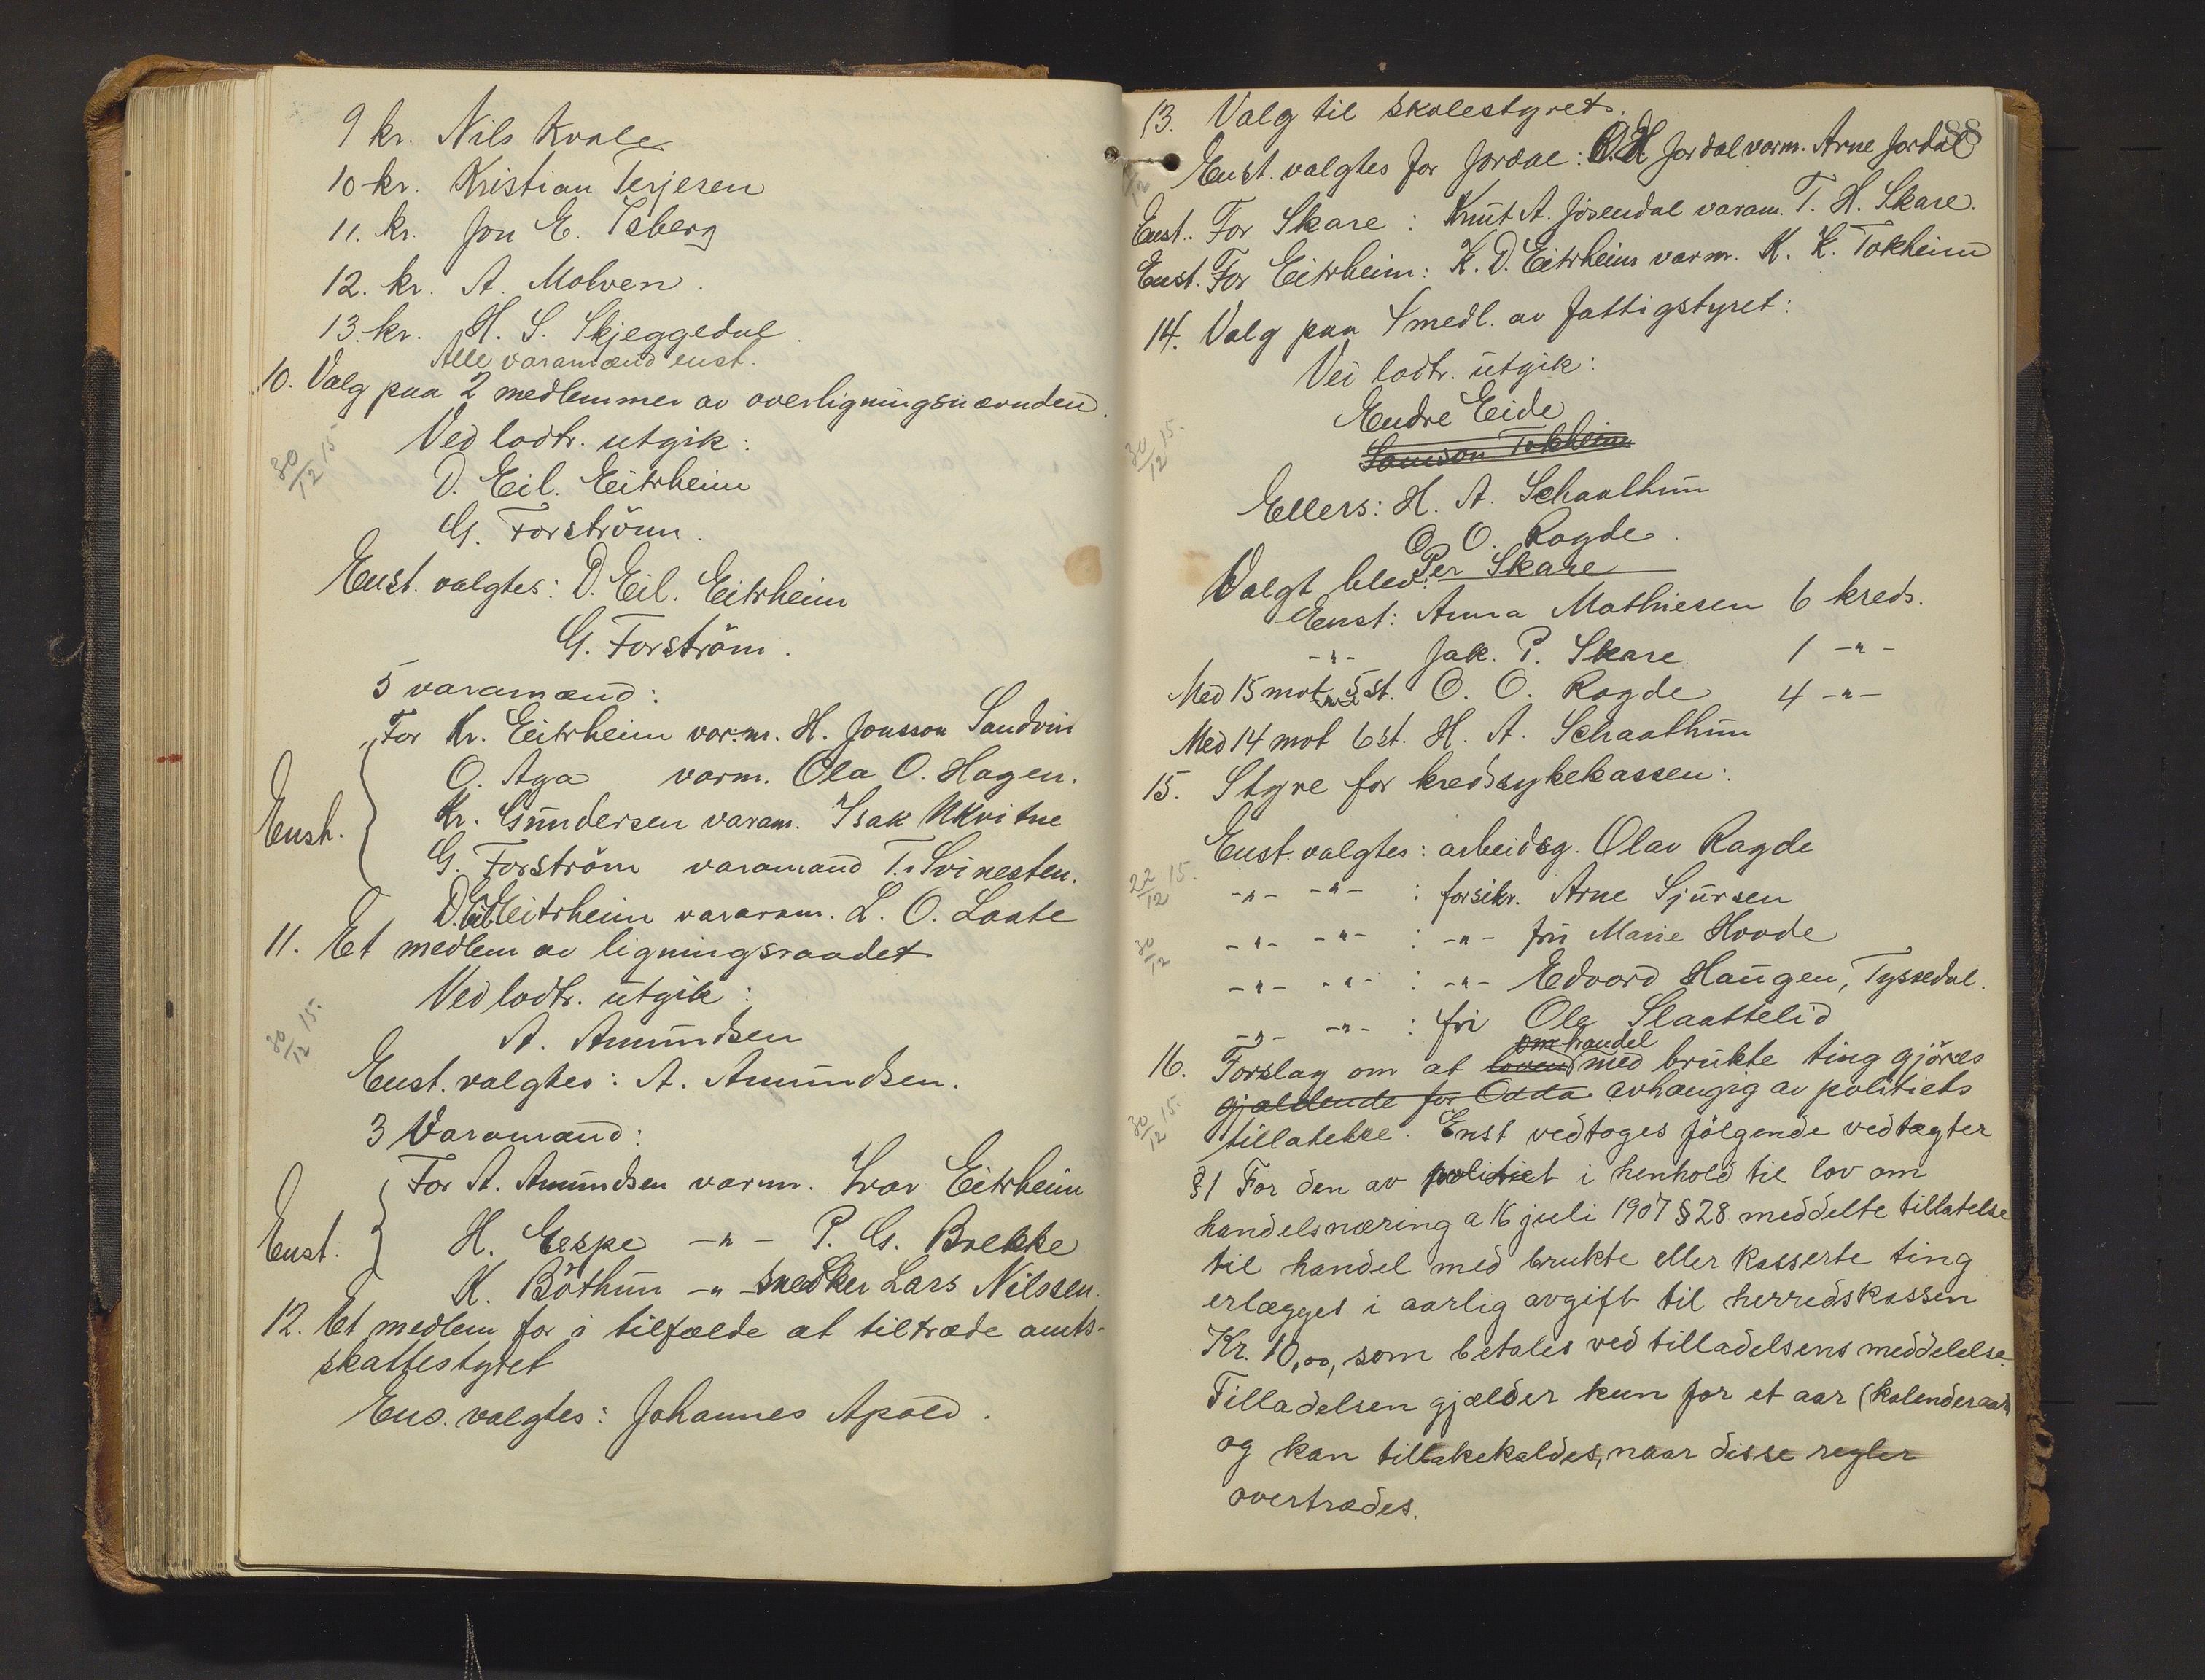 9 kr. Nils Kvale
10 kr. Kristian Terjesen
11. kr. Jon E. Isberg
12. kr. A. Molven.
13. kr. H. S. Skjeggedal.
Alle varamænd enst.
10. Valg paa 2 medlemmer av overligningsnævnden.
30/12 15.
Ved lodtr. utgik:
D. Eil. Eitrheim
G. Forström.
Enst. valgtes: D. Eil. Eitrheim
G. Forström.
5 varamænd:
For Kr. Eitrheim varm. H. Jonsson Sandvin
O. Aga varm. Ola O. Hagen.
Enst. Kr. Gundersen varam. Isak Ukvitne
G. Forström varamand T. Svinesten.
D. Eil. Eitrheim vararam. L. O. Laate
11. Et medlem av ligningsraadet
Ved lodtr. utgik:
30/12 15.
A. Amundsen
Enst. valgtes: A. Amundsen.
3 Varamænd:
For A. Amundsen varm. Ivar Eitrheim
Enst. H. Espe -"- P. G. Brekke
K. Böthun -"- snedker Lars Nilssen.
12. Et medlem for i tilfælde at tiltræde amts-
skattestyret
Ens. valgtes: Johannes Apold.
88
13. Valg til skolestyret.
Enst. valgtes for Jordal: O. H. Jordal varm. Arne Jordal
Enst. For Skare: Knut A. Jösendal varam. T. H. Skare.
Enst. For Eitrheim: K. D. Eitrheim varm. K. K. Tokheim
14. Valg paa 4 medl. av fattigstyret:
Ved lodtr. utgik:
Endre Eide
30/12 15.
Samson Tokheim
Ellers: H. A. Schaathun
O. O. Ragde.
Per Skare
Valgt blev:
Enst: Anna Mathiesen 6 kreds.
-"- Jak. P. Skare 1 -"-
Med 15 mot 5 st. O. O. Ragde 4 -"-
Med 14 mot 6 st. H. A. Schaathun
15. Styre for kredssykekassen:
Enst. valgtes: arbeidsg. Olav Ragde
22/12 15.
-"- -"- : forsikr. Arne Sjursen
30/12
-"- -"- : -"- fru Marie Hovde
-"- -"- : -"- Edvard Haugen, Tyssedal.
-"- -"- : fri Ole Slaattelid
om handel
16. Forslag om at loven med brukte ting gjöres
gjældende for Odda avhængig av politiets
30/12 15.
tillatelse. Enst vedtoges fölgende vedtægter
§1 For den av politiet i henhold til lov om
handelsnæring a 16 juli 1907 §28 meddelte tillatelse
til handel med brukte eller kasserte ting
erlægges i aarlig avgift til herredskassen
Kr. 10,00, som betales ved tilladelsens meddelelse.
Tilladelsen gjælder kun for et aar (kalenderaar)
og kan tilbakekaldes, naar disse regler
overtrædes.